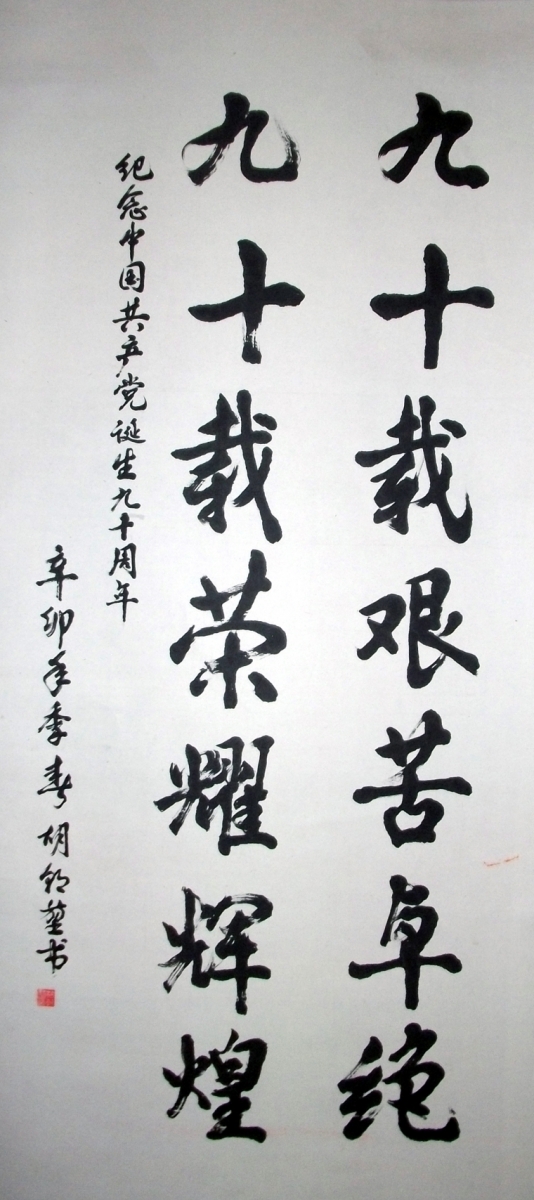 九十载艰苦卓绝
九十载荣耀辉煌
纪念中国共产党诞生九十周年
辛卯年季春胡书